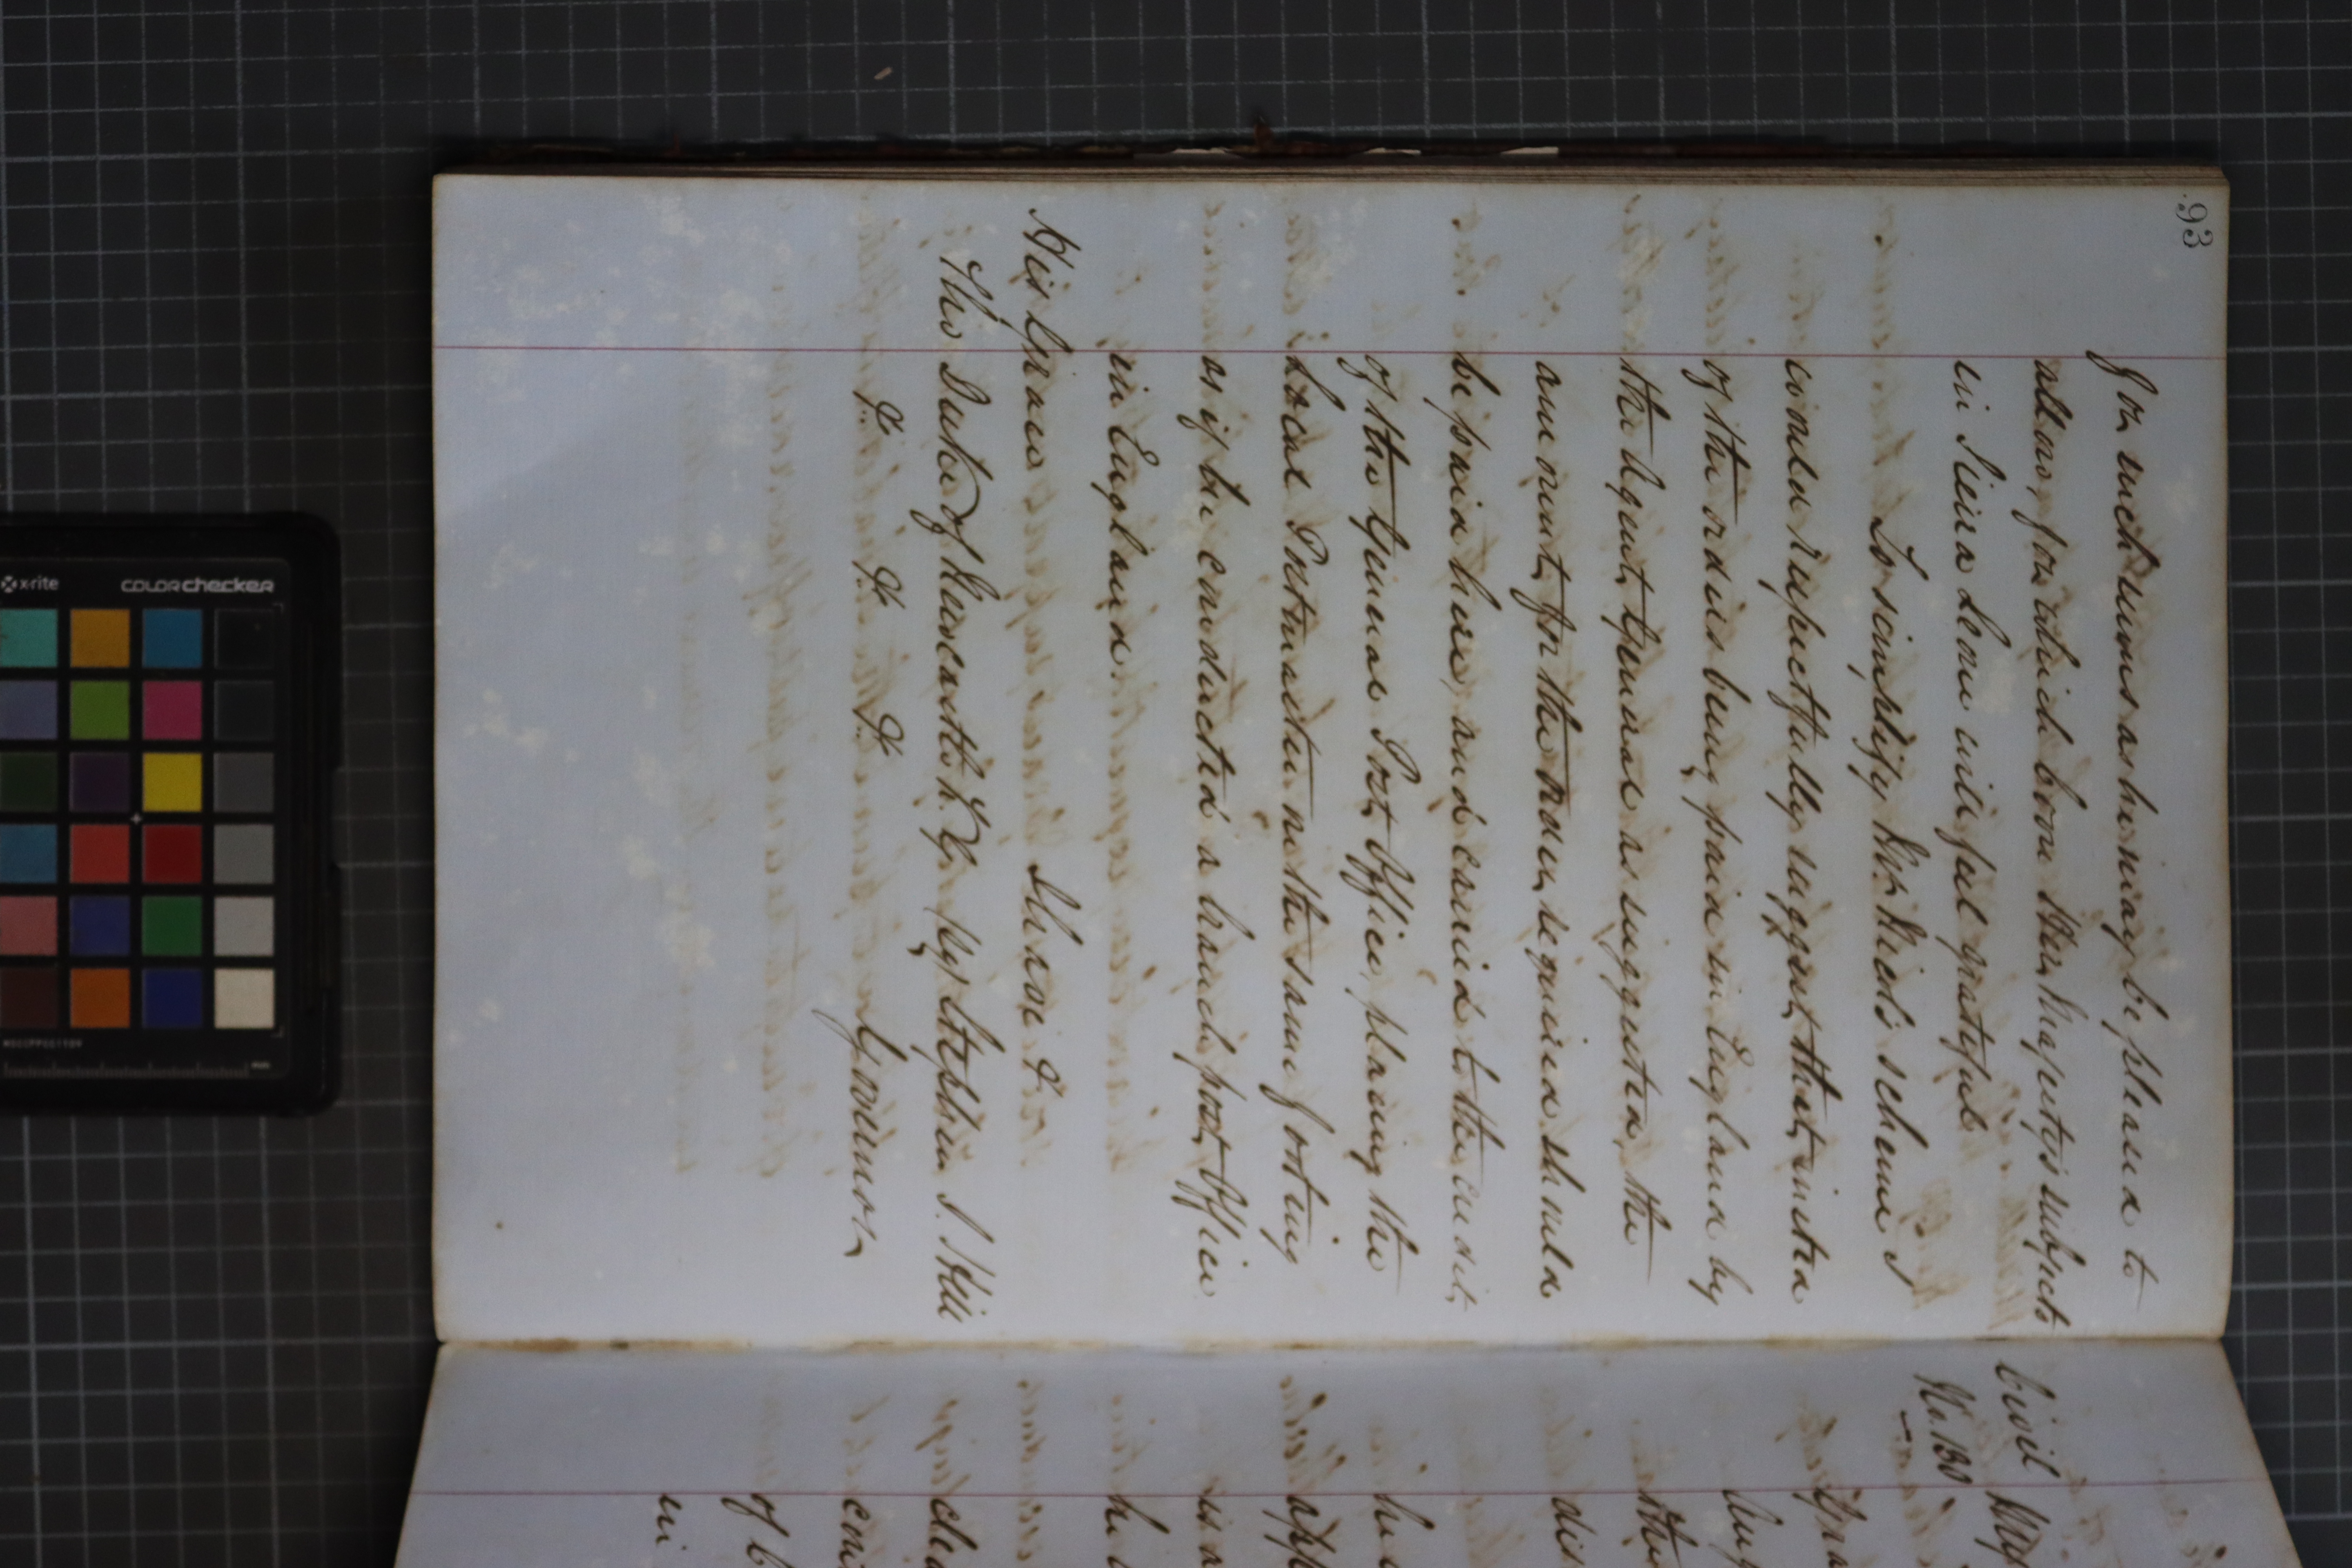 93
for such sums as he may be pleased to
allow, for which boon Her Majesty's subjects
in Siera Leone will feel grateful
To simplify Mr. Nicol's scheme I
would respectfully suggest that instead
of the orders being paid in England by
the Agent General as suggested, the
amount for the orders required should
be paid here, and carried to the credit
of the General Post Office, placing the
Local Postmaster on the same footing
as if he conducted a branch post Office
in England.
I have &c
His Grace
The Duke of Newcastle K.G. sig Stephen J. Hill
&c &c &c Governor
Civil
No. 130
in
x-rite
colorchecker